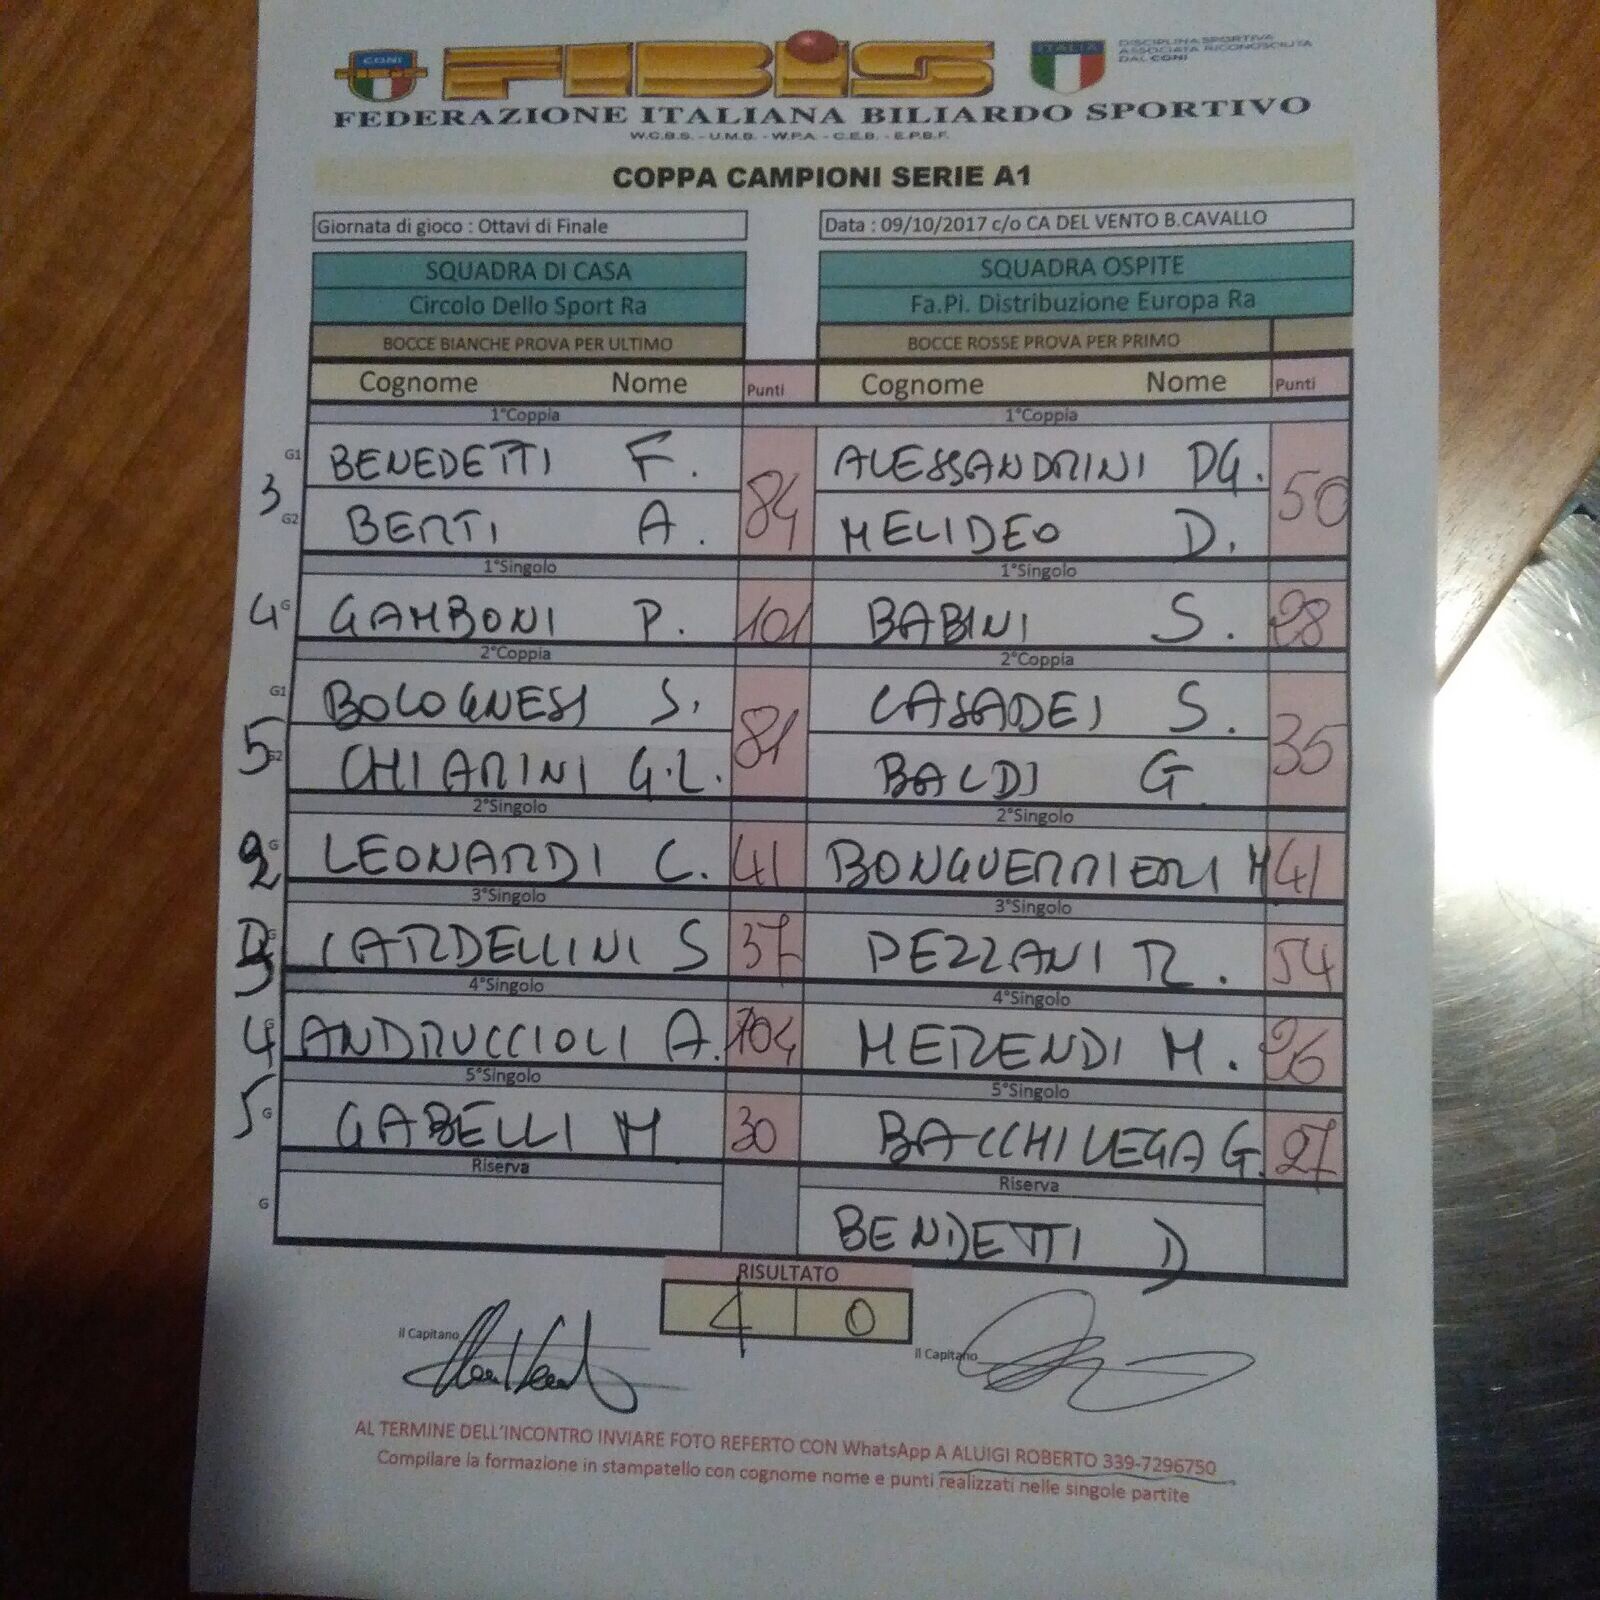 CONI
FIBIS
ITALIA
DISCIPLINA SPORTIVA
ASSOCIATA RICONOSCIUTA
DAL CONI
FEDERAZIONE ITALIANA BILIARDO SPORTIVO
W.C.B.S. - U.M.B. - W.P.A. - C.E.B. - E.P.B.F.
COPPA CAMPIONI SERIE A1
Giornata di gioco : Ottavi di Finale
Data : 09/10/2017 c/o CA DEL VENTO B.CAVALLO
SQUADRA DI CASA SQUADRA OSPITE
Circolo Dello Sport Ra Fa.Pi. Distribuzione Europa Ra
BOCCE BIANCHE PROVA PER ULTIMO BOCCE ROSSE PROVA PER PRIMO
Cognome Nome Punti Cognome Nome Punti
1°Coppia 1°Coppia
G1 BENEDETTI F. ALESSANDRINI DG.
3 84 50
G2 BERTI A. MELIDEO D.
1°Singolo 1°Singolo
4 G GAMBONI P. 101 BABINI S. 28
2°Coppia 2°Coppia
G1 BOLOGNESI S. CASADEI S.
5 81 35
G2 CHIARINI G.L. BALDI G
2°Singolo 2°Singolo
2 G LEONARDI C. 41 BONGUERRIERI M 41
3°Singolo 3°Singolo
G CARDELLINI S 37 PEZZANI R. 54
4°Singolo 4°Singolo
4 G ANDRUCCIOLI A. 104 MERENDI M. 26
5°Singolo 5°Singolo
5 G GABELLI M 30 BACCHILEGA G. 27
Riserva Riserva
G BENDETTI D
RISULTATO
4 0
il Capitano il Capitano
AL TERMINE DELL'INCONTRO INVIARE FOTO REFERTO CON WhatsApp A ALUIGI ROBERTO 339-7296750
Compilare la formazione in stampatello con cognome nome e punti realizzati nelle singole partite